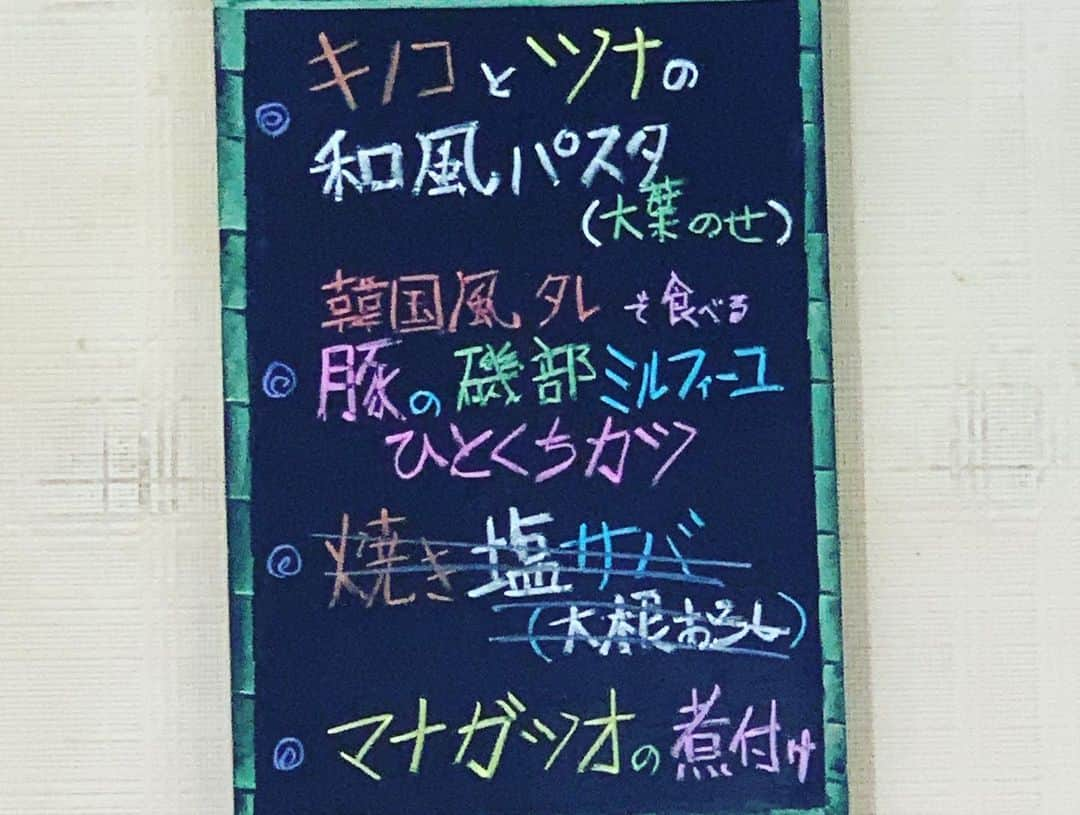 キノコとツナの
和風パスタ
(大葉のせ)
韓国風タレで食べる
豚の磯部ミルフィーユ
ひとくちカツ
焼き塩サバ
(大根おろし)
マナガツオの煮付け